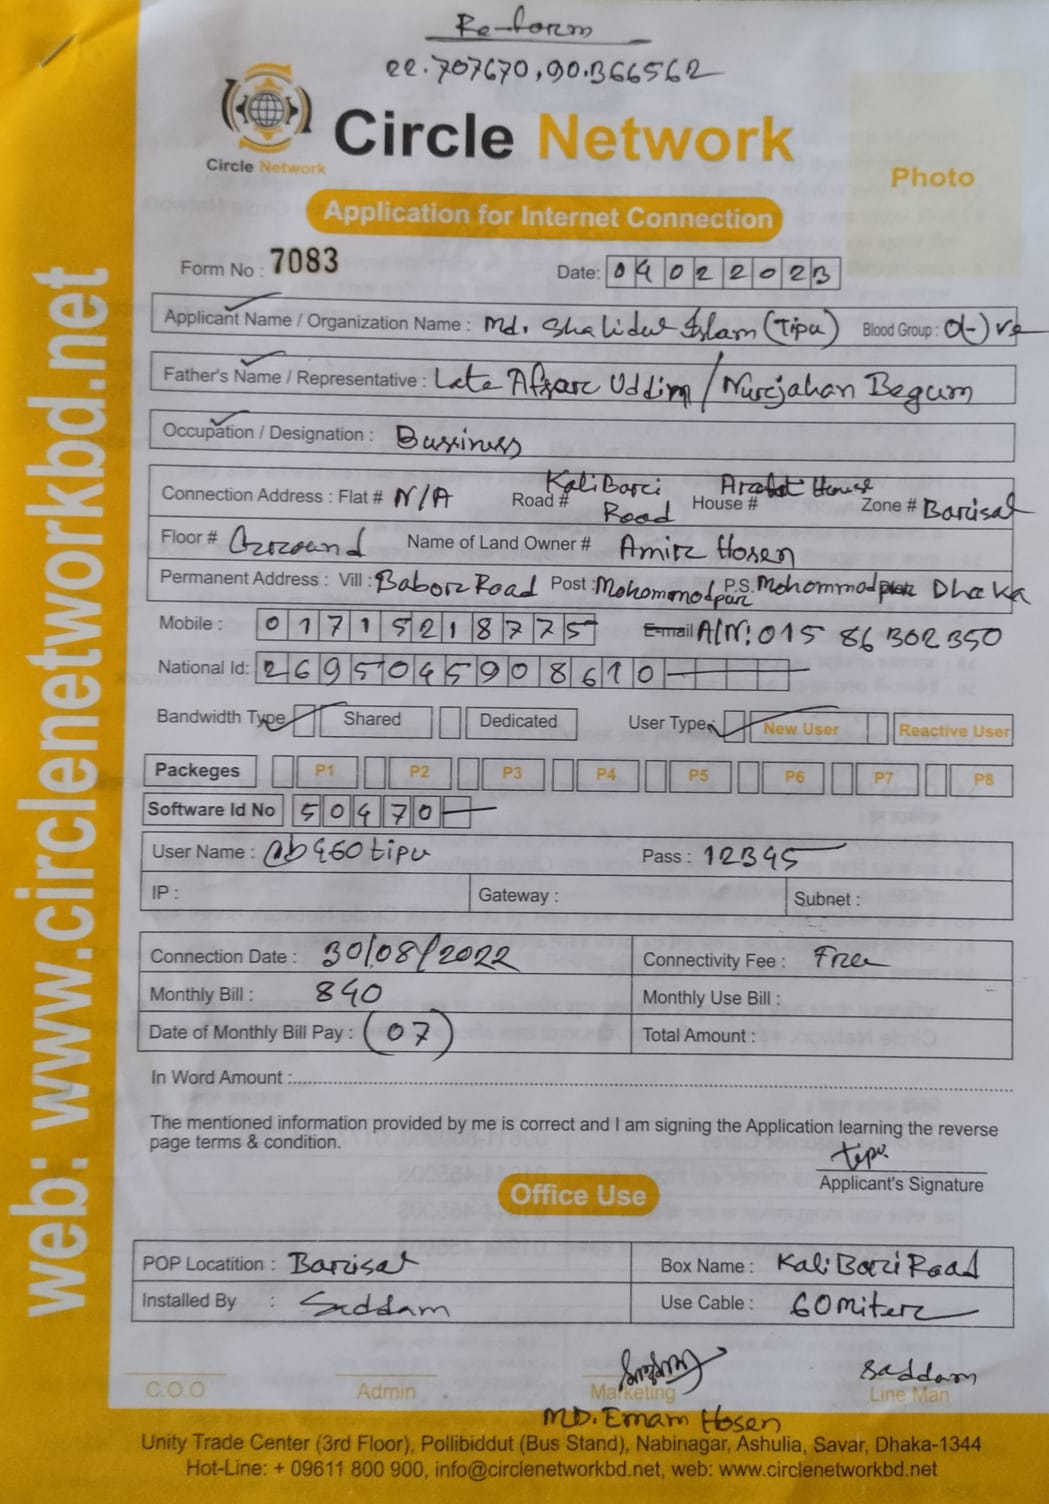 Re-form
22.707670,90.366562
Circle Network
Circle Network
Photo
Application for Internet Connection
Form No : 7083
Date: 04022023
Applicant Name / Organization Name : Md. Shalidul Islam (Tipu) Blood Group : O(-)ve
Father's Name / Representative : Late Afsar Uddin / Nurjahan Begum
Occupation / Designation : Bussiness
Connection Address : Flat # N/A Road # KaliBari Road House # Arafat House Zone # Barisal
Floor # Ground Name of Land Owner # Amir Hosen
Permanent Address : Vill : Babor Road Post : Mohommodpur P.S. Mohommodpur Dhaka
Mobile : 01715218775 E-mail A/N: 01586302350
National Id: 2695045908610
Bandwidth Type Shared Dedicated User Type New User Reactive User
Packeges P1 P2 P3 P4 P5 P6 P7 P8
Software Id No 50470
User Name : ab960tipu Pass : 12345
IP : Gateway : Subnet :
Connection Date : 30/08/2022 Connectivity Fee : Free
Monthly Bill : 840 Monthly Use Bill :
Date of Monthly Bill Pay : (07) Total Amount :
In Word Amount :
The mentioned information provided by me is correct and I am signing the Application learning the reverse
page terms & condition.
tipu
Applicant's Signature
Office Use
POP Locatition : Barisal Box Name : KaliBari Road
Installed By : Saddam Use Cable : 60 miter
Saddam
C.O.O Admin Marketing Line Man
MD. Emam Hosen
Unity Trade Center (3rd Floor), Pollibiddut (Bus Stand), Nabinagar, Ashulia, Savar, Dhaka-1344
Hot-Line: + 09611 800 900, info@circlenetworkbd.net, web: www.circlenetworkbd.net
web: www.circlenetworkbd.net